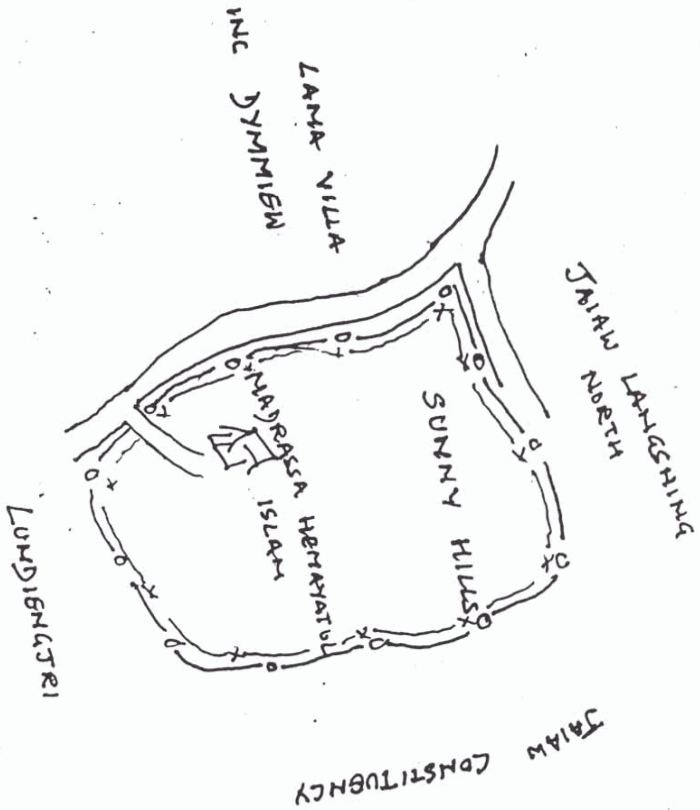 LAMA VILLA
INC DYMMIEW
JAIAW LANGSHING
NORTH
SUNNY HILLS
MADRASSA HEMAYATUL
ISLAM
LUMDIENGJRI
JAIAW CONSTITUENCY